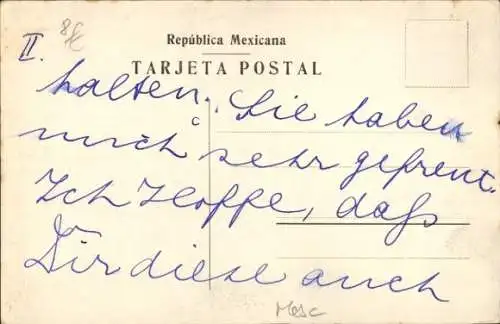 República Mexicana
II.
TARJETA POSTAL
halten. Sie haben
mich sehr gefreut.
Ich Hoffe, daß
Dir diese auch